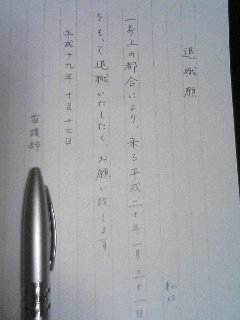 退職願
私は
一身上の都合により、来る平成二十年一月三十一日
をもって退職いたしたく、お願い致します
平成十九年十月十七日
看護部